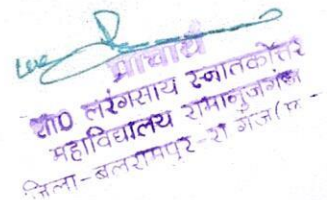 प्राचार्य
शा0 लरंगसाय स्नातकोत्तर
महाविद्यालय रामानुजगंज
जिला-बलरामपुर-रा गंज